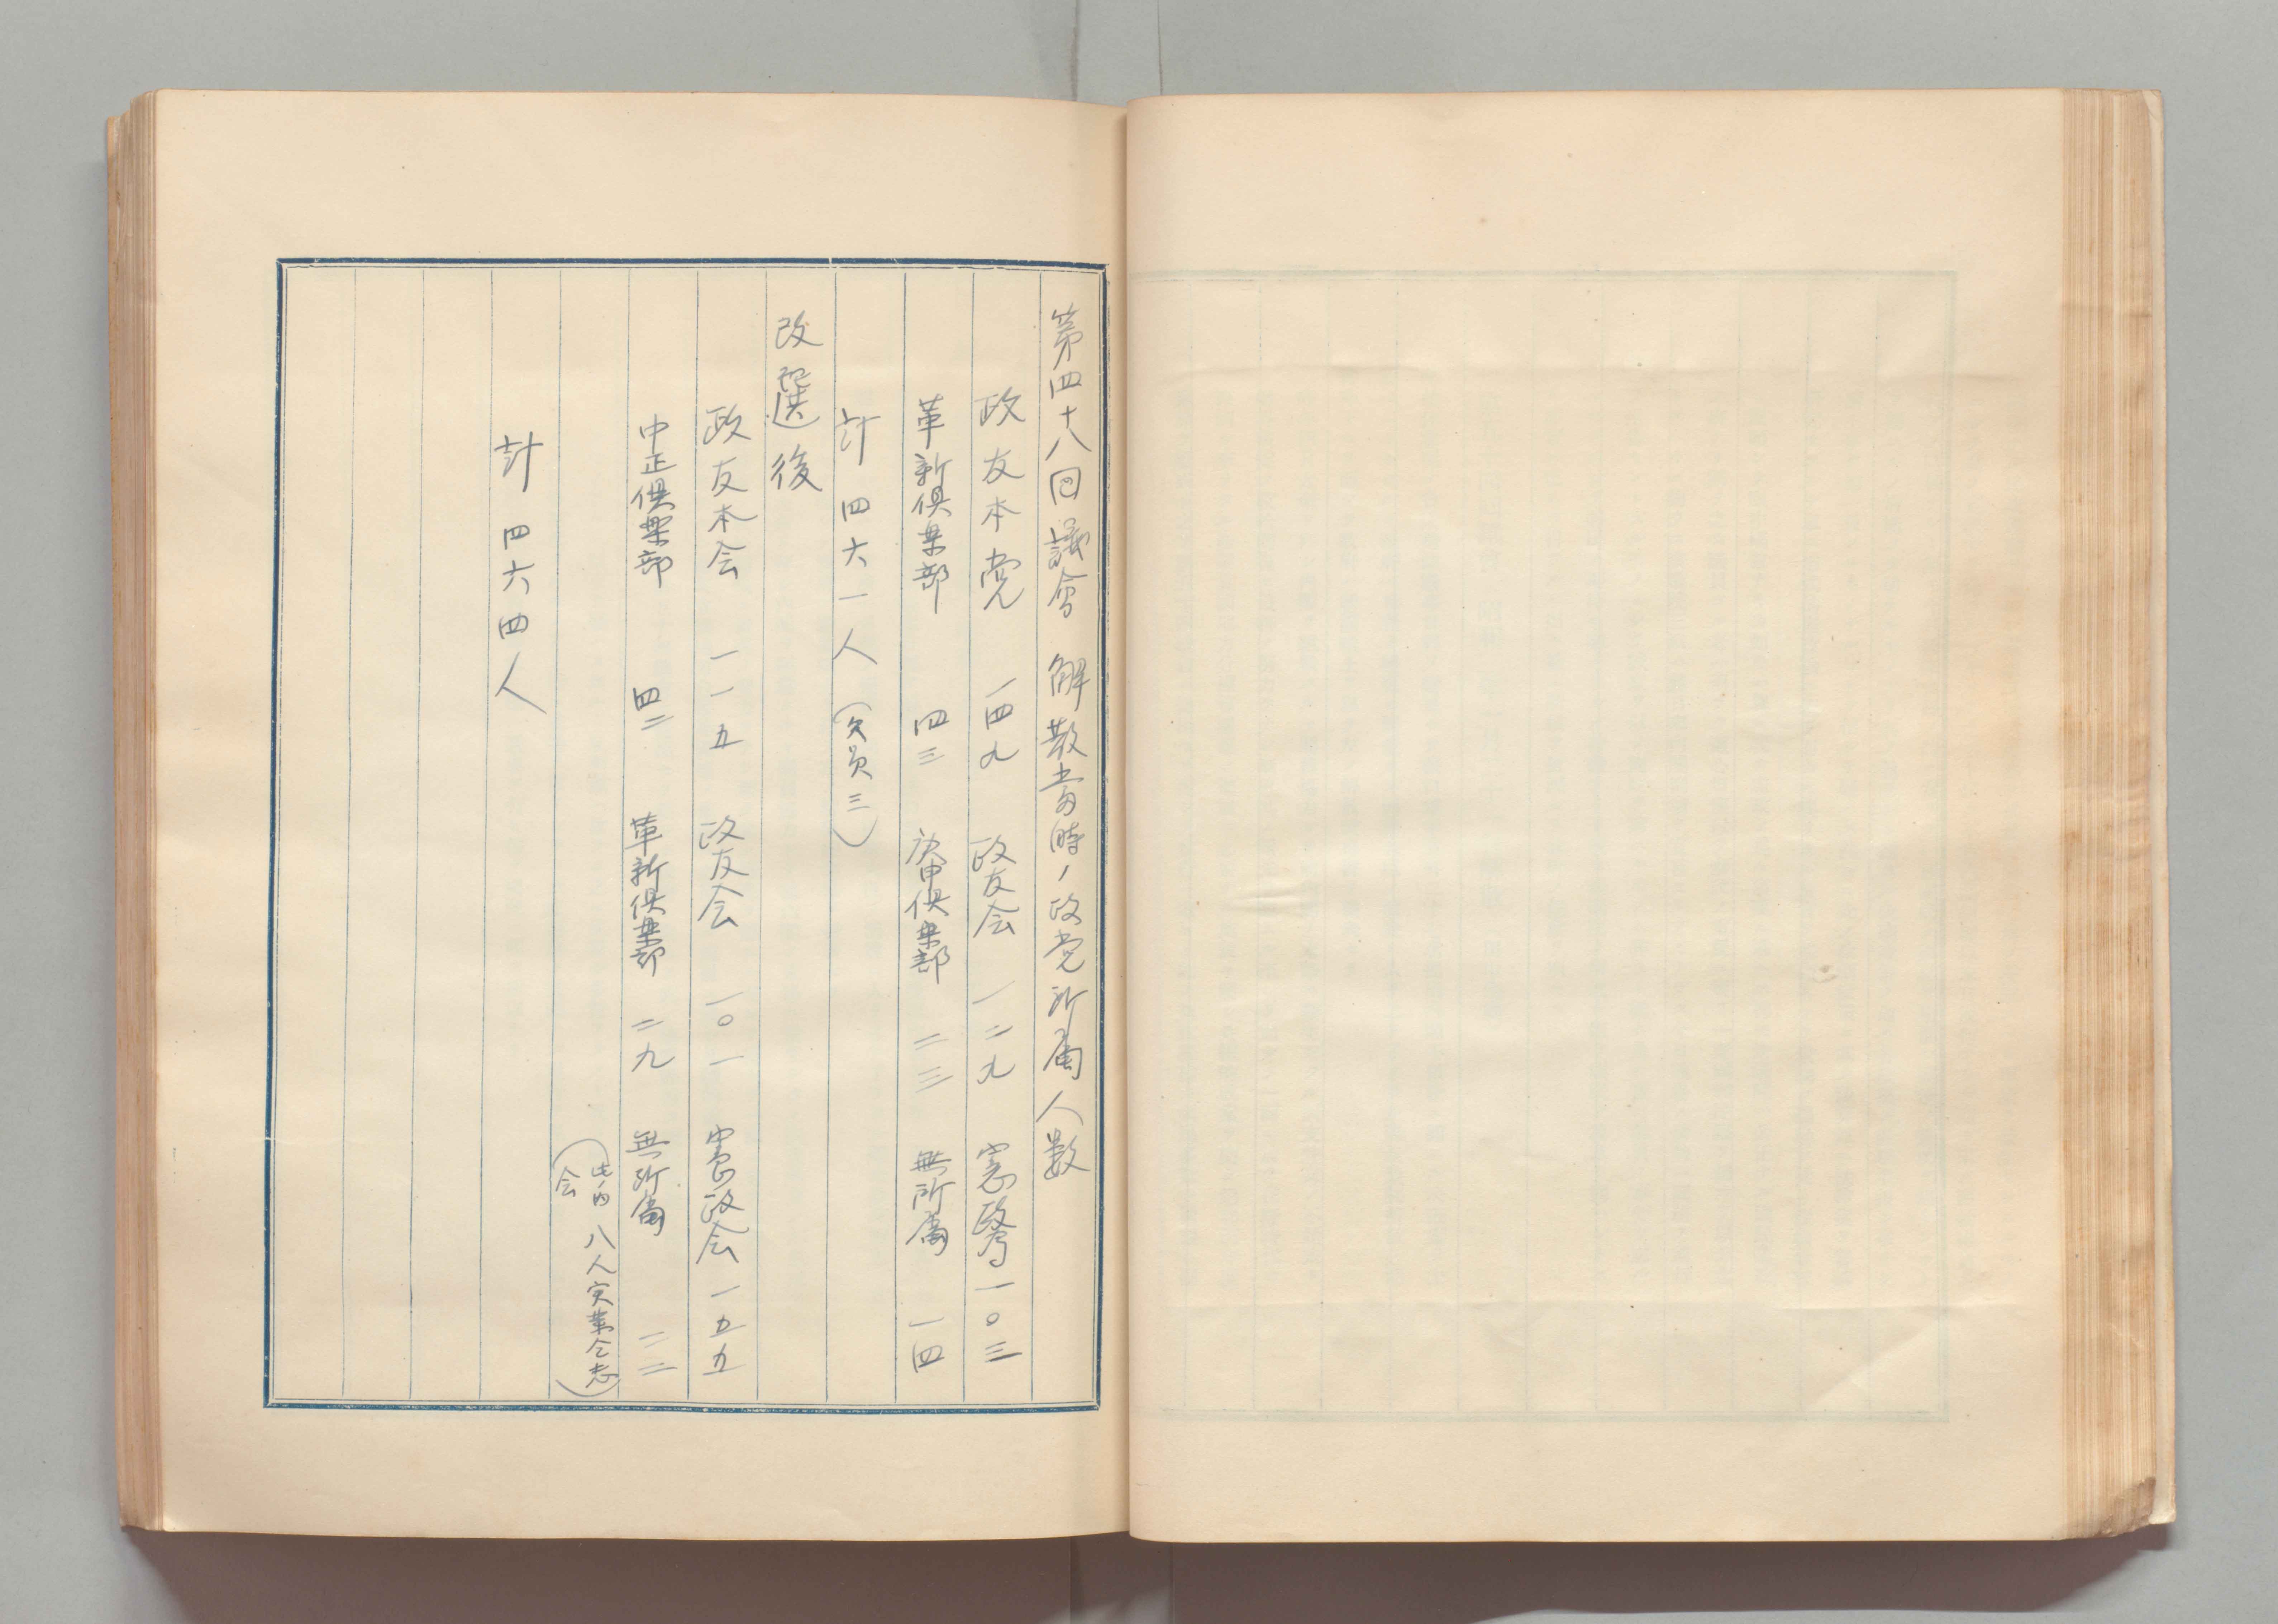 第四十八回議會 解散当時ノ政党所属人数
政友本党 一四九 政友会 一二九 憲政会 一〇三
革新倶楽部 四三 庚申倶楽部 二三 無所属 一四
計 四六一人(欠員三)
改選後
政友本会 一一五 政友会 一〇一 憲政会 一五五
中正倶楽部 四二 革新倶楽部 二九 無所属 二二
(此ノ内 八人実業仝志会)
計 四六四人